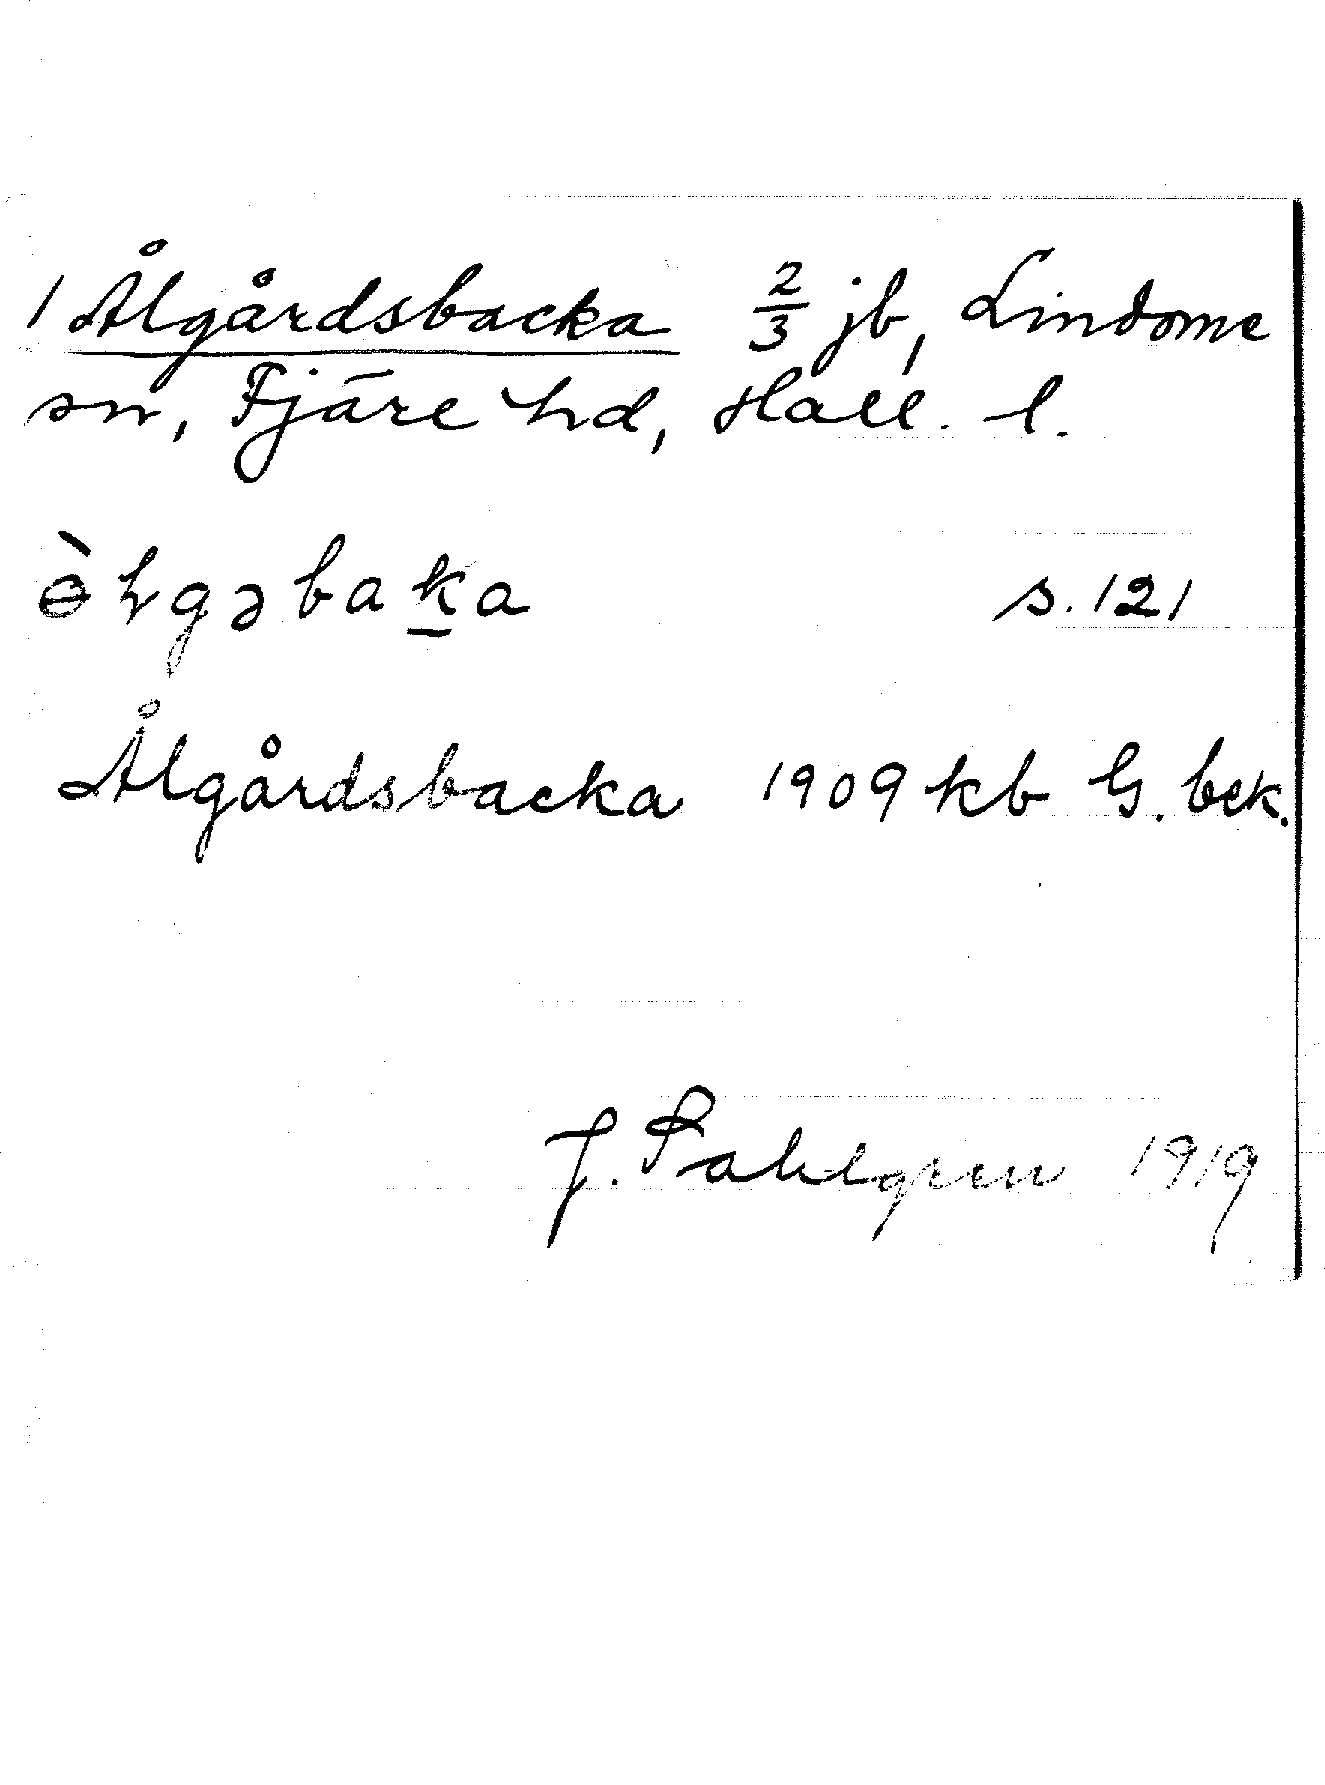 1 Ålgårdsbacka 2/3 jb, Lindome
sn, Fjäre hd, Hall. l.
ɵ̀ɫgəbaḵa s. 121
Ålgårdsbacka 1909 kb G. bek.
J. Sahlgren 1919